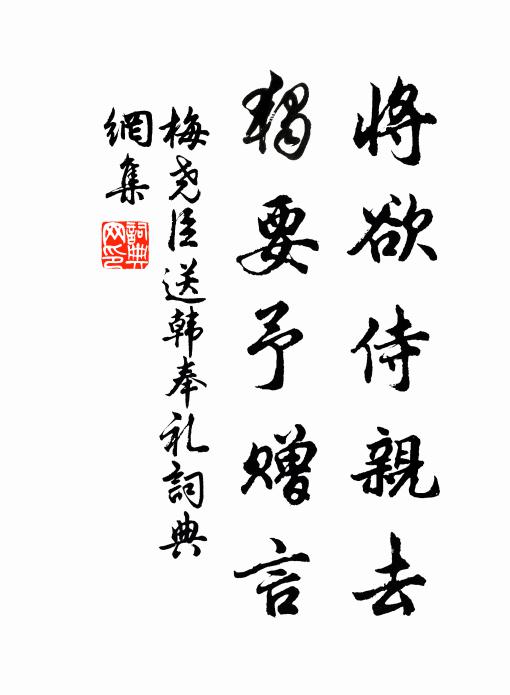 將欲侍親去
獨要予贈言
梅尧臣送韩奉礼詞典
網集
詞典
网印